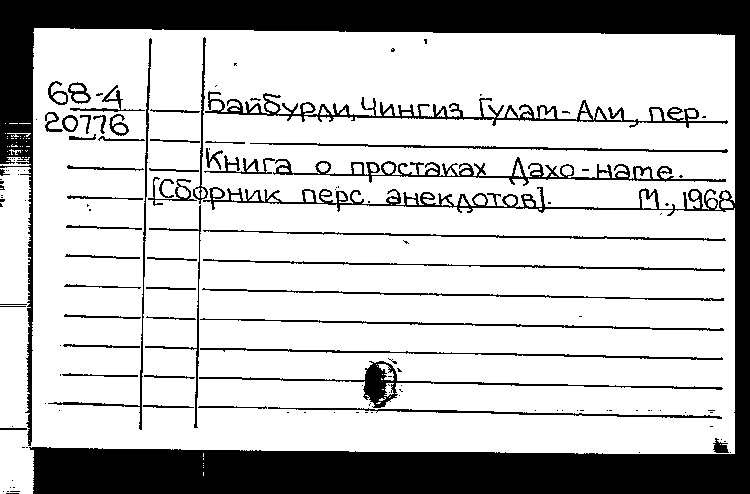 68-4
20776
Байбурди, Чингиз Гулам-Али, пер.
Книга о простаках Дахо-наме.
[Сборник перс. анекдотов]. М., 1968